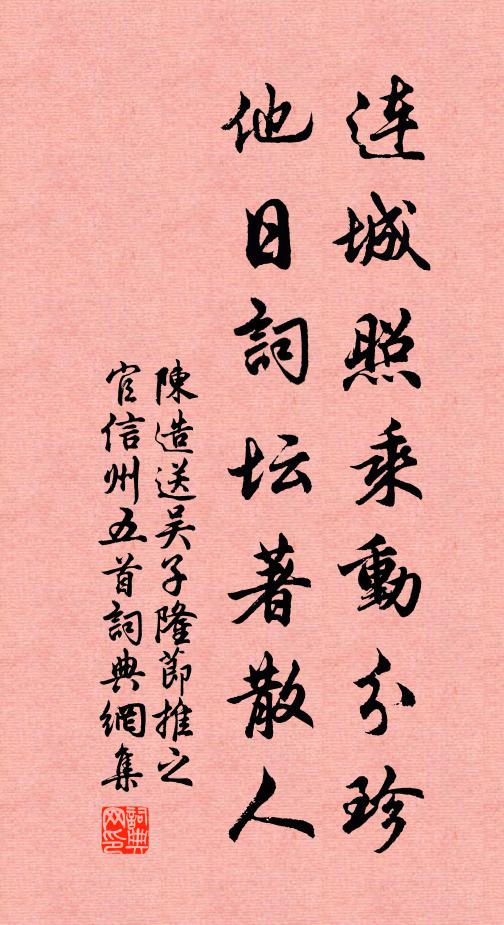 連城照乘動分珍
他日詞坛著散人
陳造送吴子隆節推之
官信州五首詞典網集
詞典网印